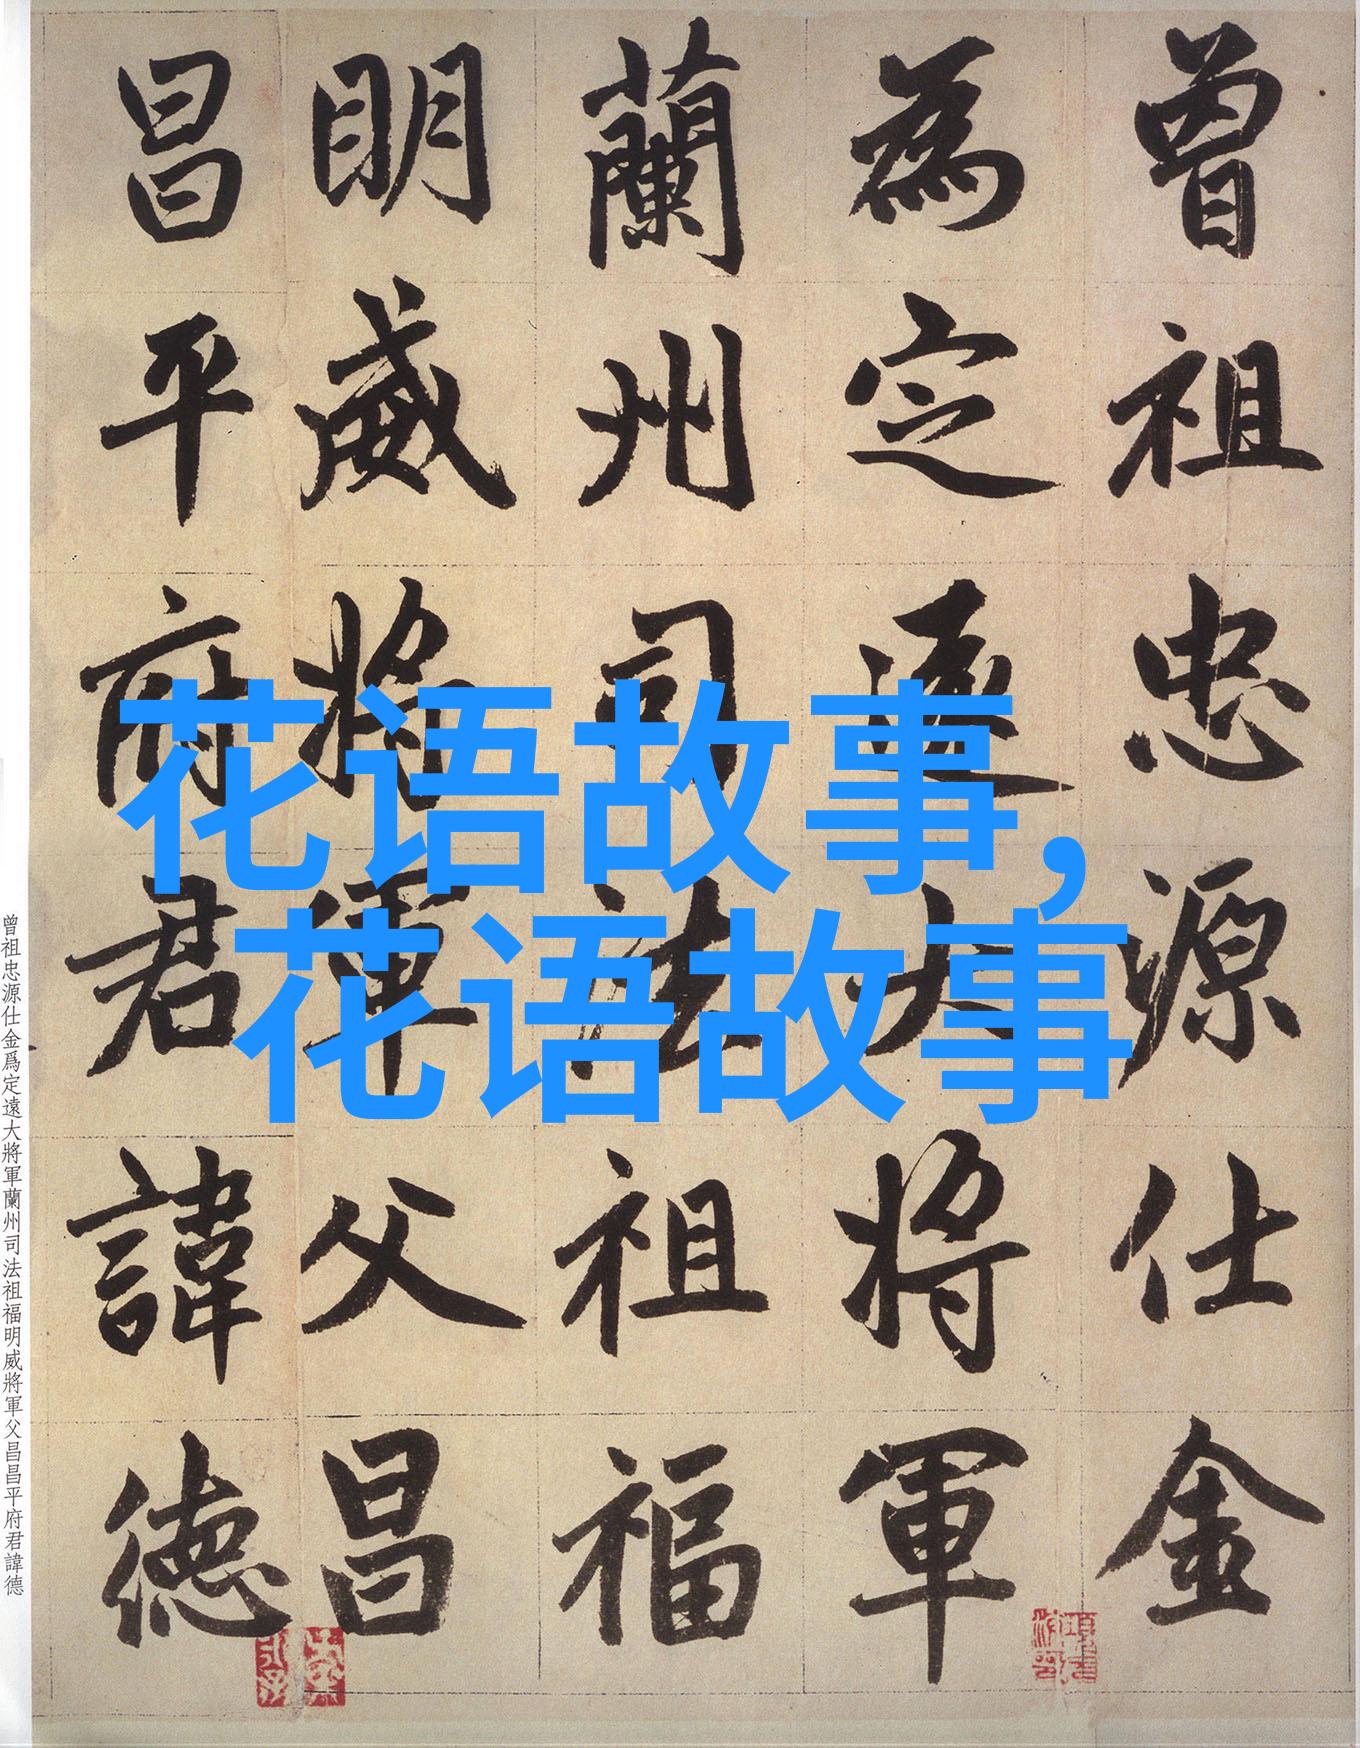 曾祖忠源仕金
為定遠大將軍
蘭州司法祖福
明威將軍父昌
昌平府君諱德
花语故事，
花语故事
曾祖忠源仕金爲定遠大將軍蘭州司法祖福明威將軍父昌昌平府君諱德